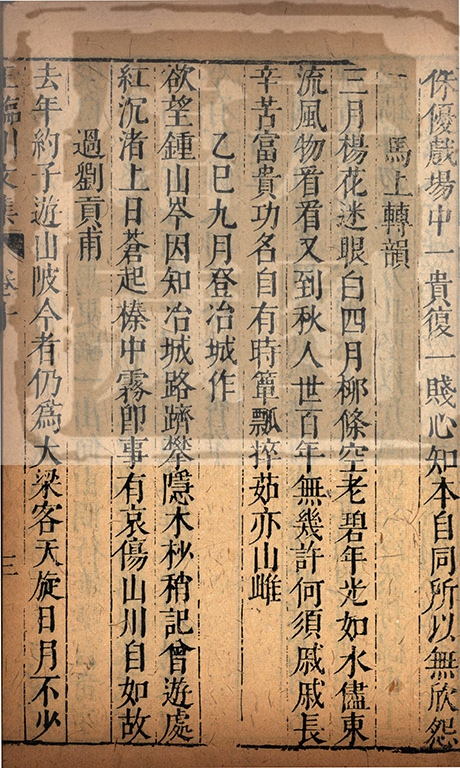 侏優戲場中一貴復一賤心知本自同所以無欣怨
馬上轉韻
三月楊花迷眼白四月柳條空老碧年光如水儘東
流風物看看又到秋人世百年無幾許何須戚戚長
辛苦富貴功名自有時簞瓢捽茹亦山雌
乙巳九月登冶城作
欲望鍾山岑因知冶城路躋攀隱木杪稍記曾遊處
紅沉渚上日蒼起榛中霧即事有哀傷山川自如故
過劉貢甫
去年約子遊山陂今者仍為大梁客天旋日月不少
王臨川文集 卷十 三